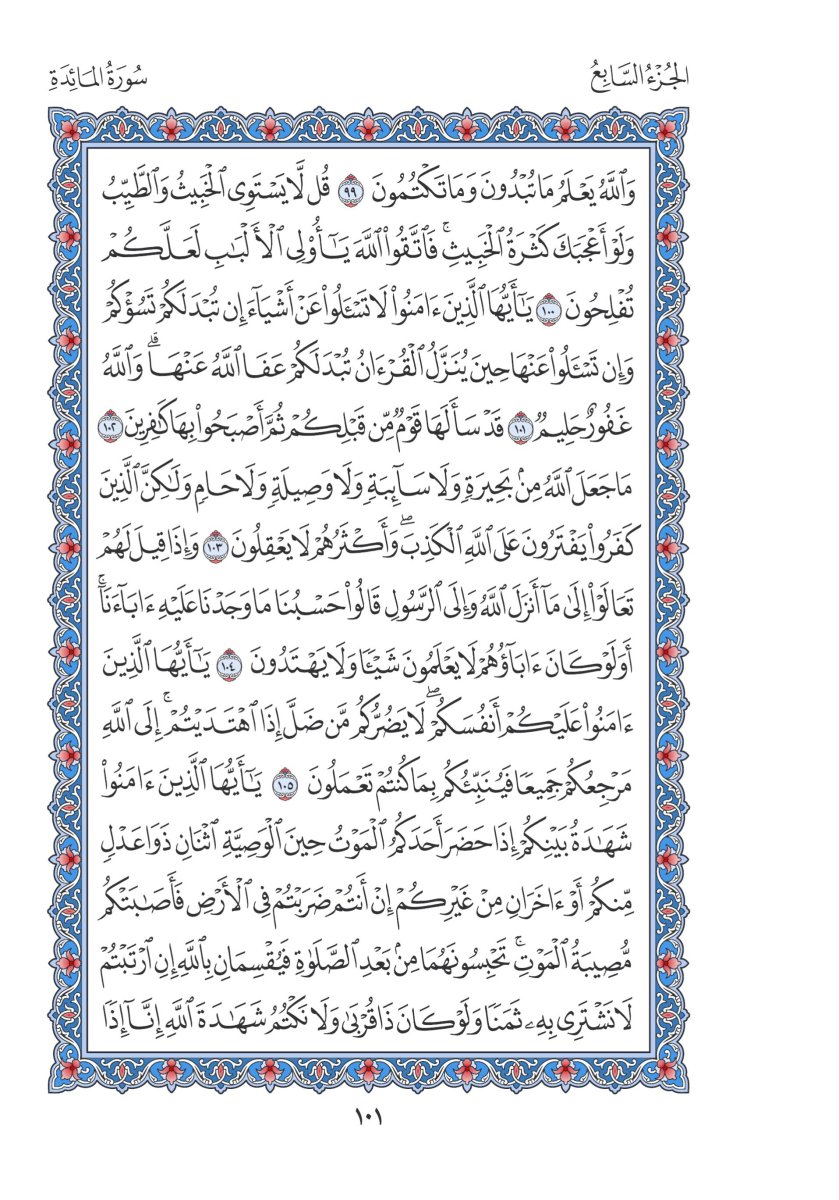 الجُزْءُ السَّابِعُ
سُورَةُ المَائِدَةِ
وَٱللَّهُ يَعْلَمُ مَا تُبْدُونَ وَمَا تَكْتُمُونَ ٩٩ قُل لَّا يَسْتَوِى ٱلْخَبِيثُ وَٱلطَّيِّبُ
وَلَوْ أَعْجَبَكَ كَثْرَةُ ٱلْخَبِيثِۚ فَٱتَّقُوا۟ ٱللَّهَ يَـٰٓأُو۟لِى ٱلْأَلْبَـٰبِ لَعَلَّكُمْ
تُفْلِحُونَ ١٠٠ يَـٰٓأَيُّهَا ٱلَّذِينَ ءَامَنُوا۟ لَا تَسْـَٔلُوا۟ عَنْ أَشْيَآءَ إِن تُبْدَ لَكُمْ تَسُؤْكُمْ
وَإِن تَسْـَٔلُوا۟ عَنْهَا حِينَ يُنَزَّلُ ٱلْقُرْءَانُ تُبْدَ لَكُمْ عَفَا ٱللَّهُ عَنْهَاۗ وَٱللَّهُ
غَفُورٌ حَلِيمٌ ١٠١ قَدْ سَأَلَهَا قَوْمٌ مِّن قَبْلِكُمْ ثُمَّ أَصْبَحُوا۟ بِهَا كَـٰفِرِينَ ١٠٢
مَا جَعَلَ ٱللَّهُ مِنۢ بَحِيرَةٍ وَلَا سَآئِبَةٍ وَلَا وَصِيلَةٍ وَلَا حَامٍ وَلَـٰكِنَّ ٱلَّذِينَ
كَفَرُوا۟ يَفْتَرُونَ عَلَى ٱللَّهِ ٱلْكَذِبَۖ وَأَكْثَرُهُمْ لَا يَعْقِلُونَ ١٠٣ وَإِذَا قِيلَ لَهُمْ
تَعَالَوْا۟ إِلَىٰ مَآ أَنزَلَ ٱللَّهُ وَإِلَى ٱلرَّسُولِ قَالُوا۟ حَسْبُنَا مَا وَجَدْنَا عَلَيْهِ ءَابَآءَنَآۚ
أَوَلَوْ كَانَ ءَابَآؤُهُمْ لَا يَعْلَمُونَ شَيْـًٔا وَلَا يَهْتَدُونَ ١٠٤ يَـٰٓأَيُّهَا ٱلَّذِينَ
ءَامَنُوا۟ عَلَيْكُمْ أَنفُسَكُمْۖ لَا يَضُرُّكُم مَّن ضَلَّ إِذَا ٱهْتَدَيْتُمْۚ إِلَى ٱللَّهِ
مَرْجِعُكُمْ جَمِيعًا فَيُنَبِّئُكُم بِمَا كُنتُمْ تَعْمَلُونَ ١٠٥ يَـٰٓأَيُّهَا ٱلَّذِينَ ءَامَنُوا۟
شَهَـٰدَةُ بَيْنِكُمْ إِذَا حَضَرَ أَحَدَكُمُ ٱلْمَوْتُ حِينَ ٱلْوَصِيَّةِ ٱثْنَانِ ذَوَا عَدْلٍ
مِّنكُمْ أَوْ ءَاخَرَانِ مِنْ غَيْرِكُمْ إِنْ أَنتُمْ ضَرَبْتُمْ فِى ٱلْأَرْضِ فَأَصَـٰبَتْكُم
مُّصِيبَةُ ٱلْمَوْتِۚ تَحْبِسُونَهُمَا مِنۢ بَعْدِ ٱلصَّلَوٰةِ فَيُقْسِمَانِ بِٱللَّهِ إِنِ ٱرْتَبْتُمْ
لَا نَشْتَرِى بِهِۦ ثَمَنًا وَلَوْ كَانَ ذَا قُرْبَىٰ وَلَا نَكْتُمُ شَهَـٰدَةَ ٱللَّهِ إِنَّآ إِذًا
١٠١